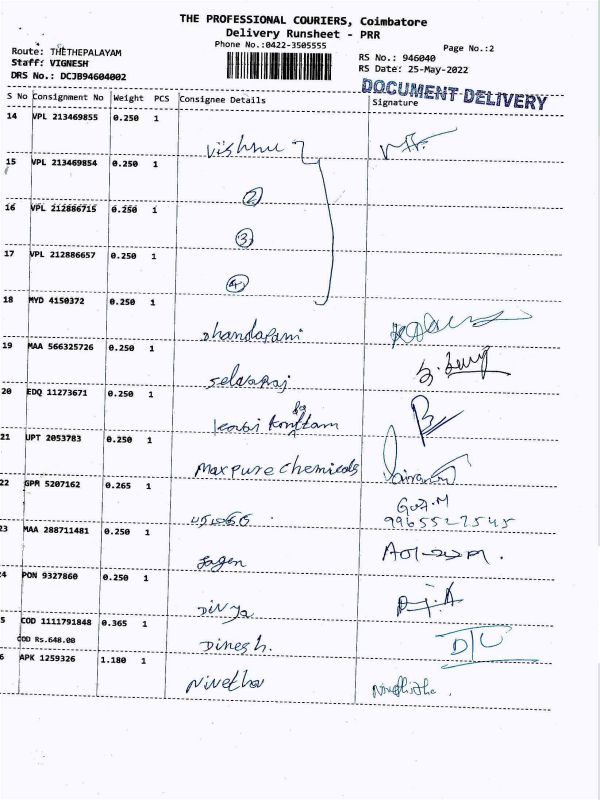 THE PROFESSIONAL COURIERS, Coimbatore
Delivery Runsheet - PRR
Phone No.:0422-3505555
Page No.:2
Route: THETHEPALAYAM
RS No.: 946040
Staff: VIGNESH
RS Date: 25-May-2022
DRS No.: DCJB94604002
DOCUMENT DELIVERY
S No Consignment No Weight PCS Consignee Details Signature
14 VPL 213469855 0.250 1
Vishnu
15 VPL 213469854 0.250 1
2
16 VPL 212886715 0.250 1
3
17 VPL 212886657 0.250 1
4
18 MYD 4150372 0.250 1
dhandapani
19 MAA 566325726 0.250 1
Selvaraj
20 EDQ 11273671 0.250 1
21 UPT 2053783 0.250 1
Maxpure chemicals
22 GPR 5207162 0.265 1
9965527545
23 MAA 288711481 0.250 1
4 PON 9327860 0.250 1
Divya
5 COD 1111791848 0.365 1
COD Rs.648.00
Dinesh.
6 APK 1259326 1.180 1
Nivetha